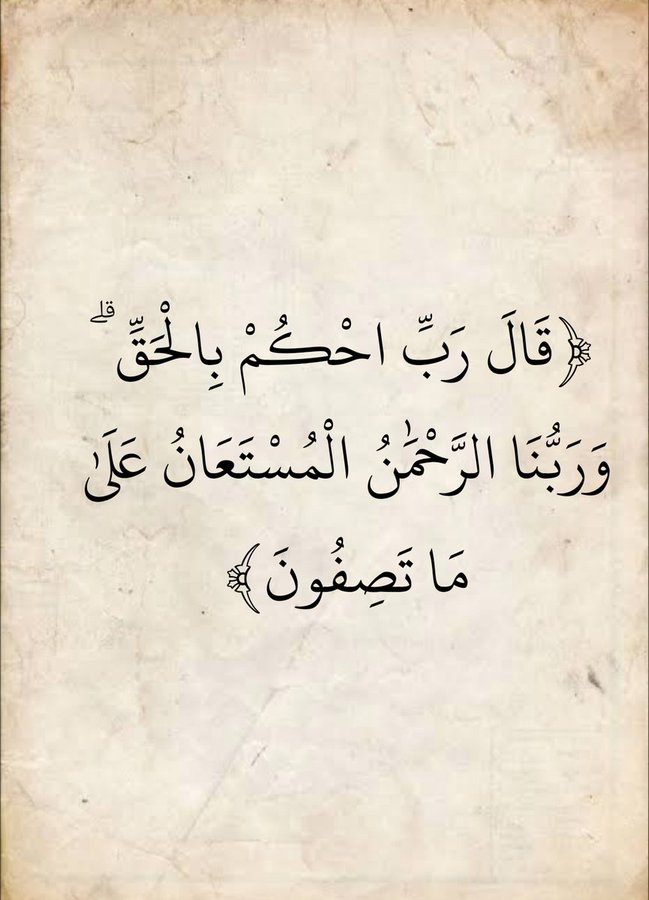 ﴿قَالَ رَبِّ احْكُمْ بِالْحَقِّ ۗ
وَرَبُّنَا الرَّحْمَٰنُ الْمُسْتَعَانُ عَلَىٰ
مَا تَصِفُونَ﴾